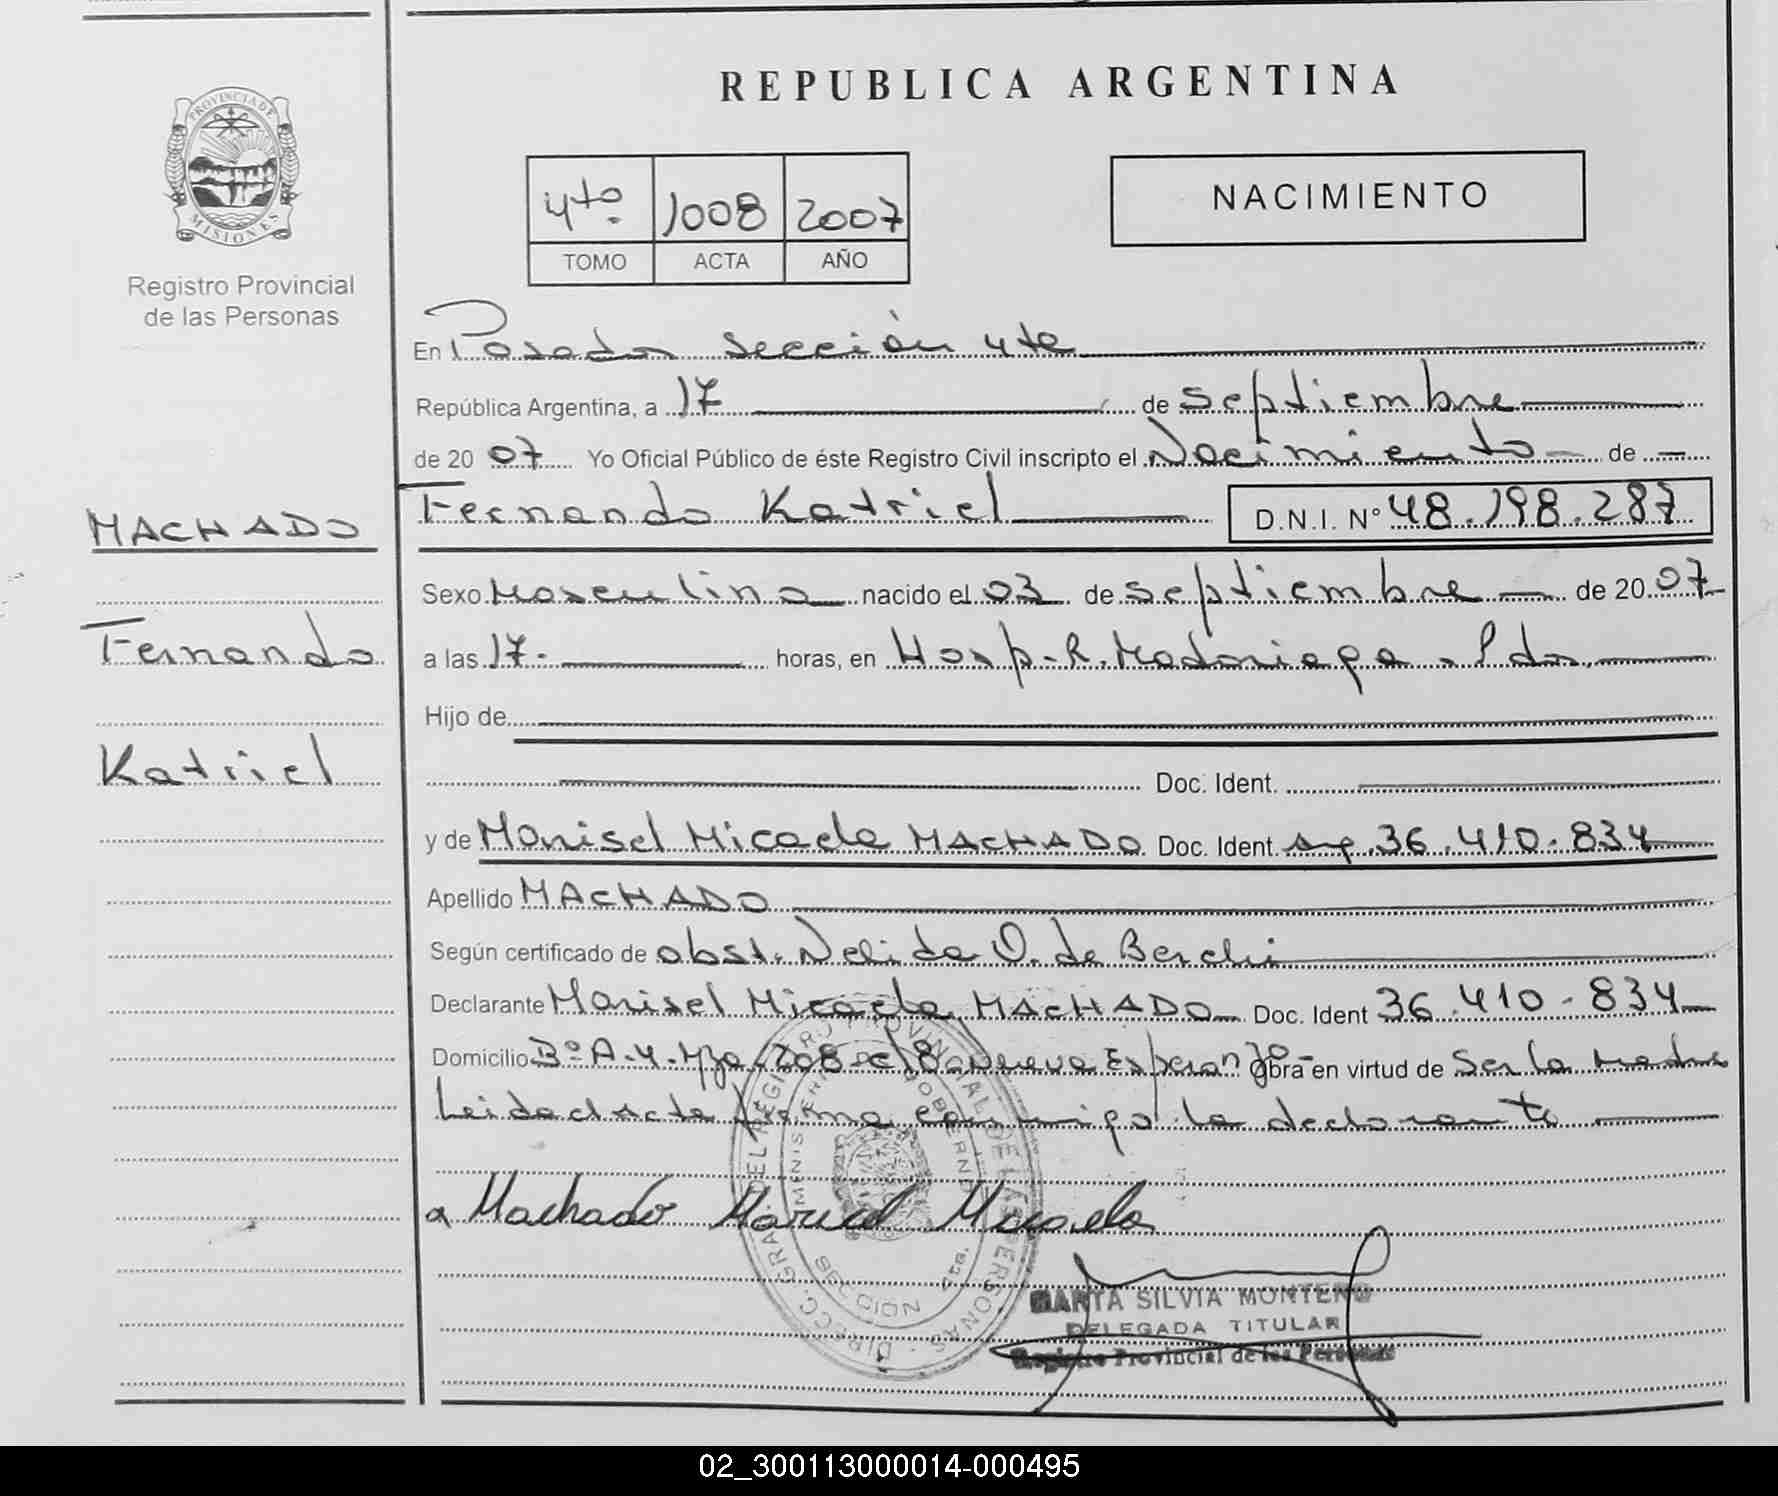 PROVINCIA DE
MISIONES
Registro Provincial
de las Personas
MACHADO
Fernando
Katriel
REPUBLICA ARGENTINA
4to. 1008 2007
TOMO ACTA AÑO
NACIMIENTO
En Posadas sección 4ta
República Argentina, a 17 de septiembre
de 2007 Yo Oficial Público de éste Registro Civil inscripto el Nacimiento de
Fernando Katriel D.N.I. Nº 48.198.287
Sexo Masculino nacido el 03 de septiembre de 2007
a las 17. horas, en Hosp. R. Madariaga. Pdas.
Hijo de
Doc. Ident.
y de Marisel Micaela MACHADO Doc. Ident 36.410.834
Apellido MACHADO
Según certificado de obst. Nelida O. de Berchi
Declarante Marisel Micaela MACHADO Doc. Ident 36.410.834
Domicilio Bº A-4 Mza 208 c/8 Nueva Esperanza obra en virtud de ser la madre
Leida el acta firma conmigo la declarante
Machado Marisel Micaela
DIRECC. GRAL. DEL REGISTRO PROVINCIAL DE LAS PERSONAS
MARTA SILVIA MONTERO
DELEGADA TITULAR
Registro Provincial de las Personas
02_300113000014-000495